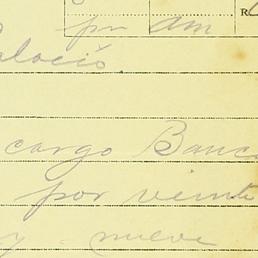 por am
Palacio
cargo Banco
por veinte
y nueve